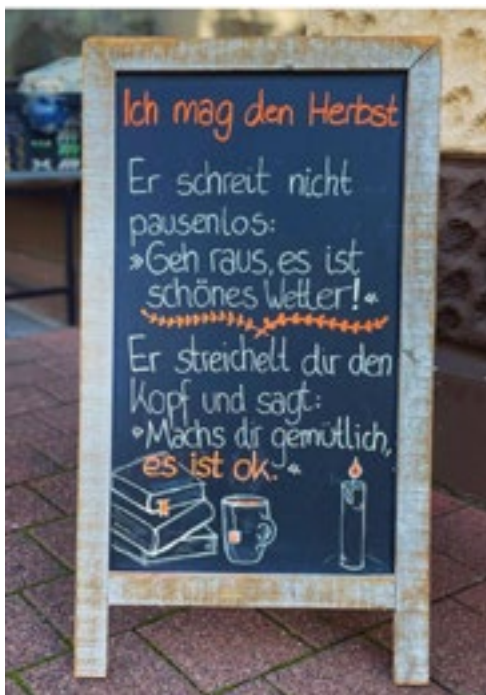 Ich mag den Herbst
Er schreit nicht
pausenlos:
»Geh raus, es ist
schönes Wetter!«
Er streichelt dir den
Kopf und sagt:
»Machs dir gemütlich,
es ist ok.«